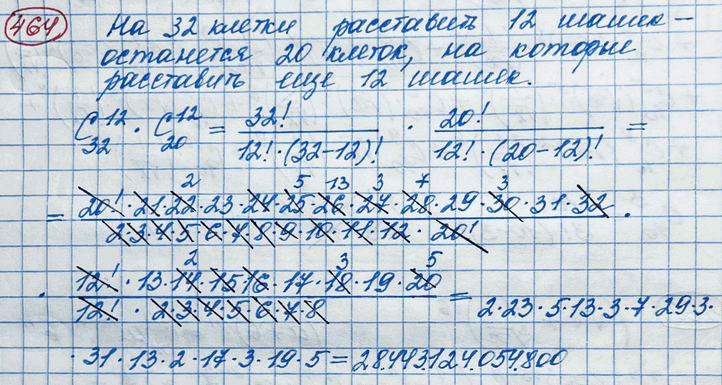 464 На 32 клетки расставить 12 шашек –
останется 20 клеток, на которые
расставить еще 12 шашек.
C₃₂¹² · C₂₀¹² = 32! / (12! · (32–12)!) · 20! / (12! · (20–12)!) =
2 5 13 3 7 3
= 20! · 21 · 22 · 23 · 24 · 25 · 26 · 27 · 28 · 29 · 30 · 31 · 32 / (2·3·4·5·6·7·8·9·10·11·12 · 20!) ·
2 3 5
· 12! · 13 · 14 · 15 · 16 · 17 · 18 · 19 · 20 / (12! · 2·3·4·5·6·7·8) = 2·23·5·13·3·7·29·3·
·31·13·2·17·3·19·5 = 28.443.124.054.800